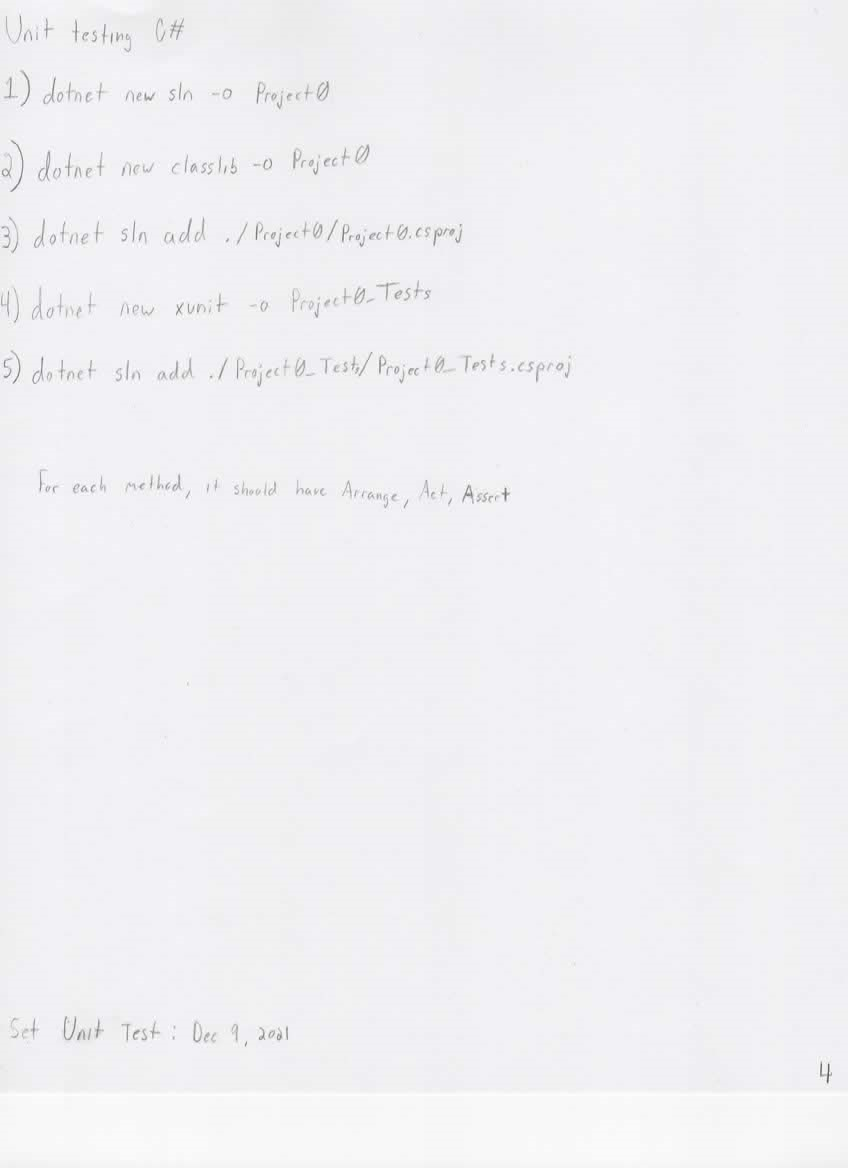 Unit testing C#
1) dotnet new sln -o Project0
2) dotnet new classlib -o Project0
3) dotnet sln add ./Project0/Project0.csproj
4) dotnet new xunit -o Project0_Tests
5) dotnet sln add ./Project0_Tests/Project0_Tests.csproj
For each method, it should have Arrange, Act, Assert
Set Unit Test: Dec 9, 2021
4